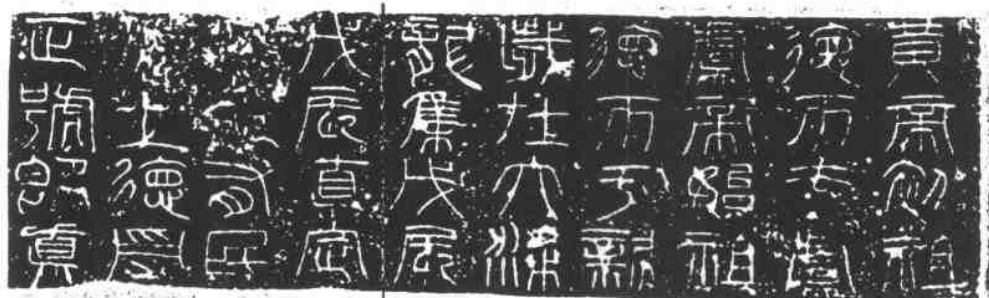 黃帝初祖
德帀于虞
虞帝始祖
德帀于新
歲在大梁
龍集戊辰
戊辰直定
有民
土德受
正號即真